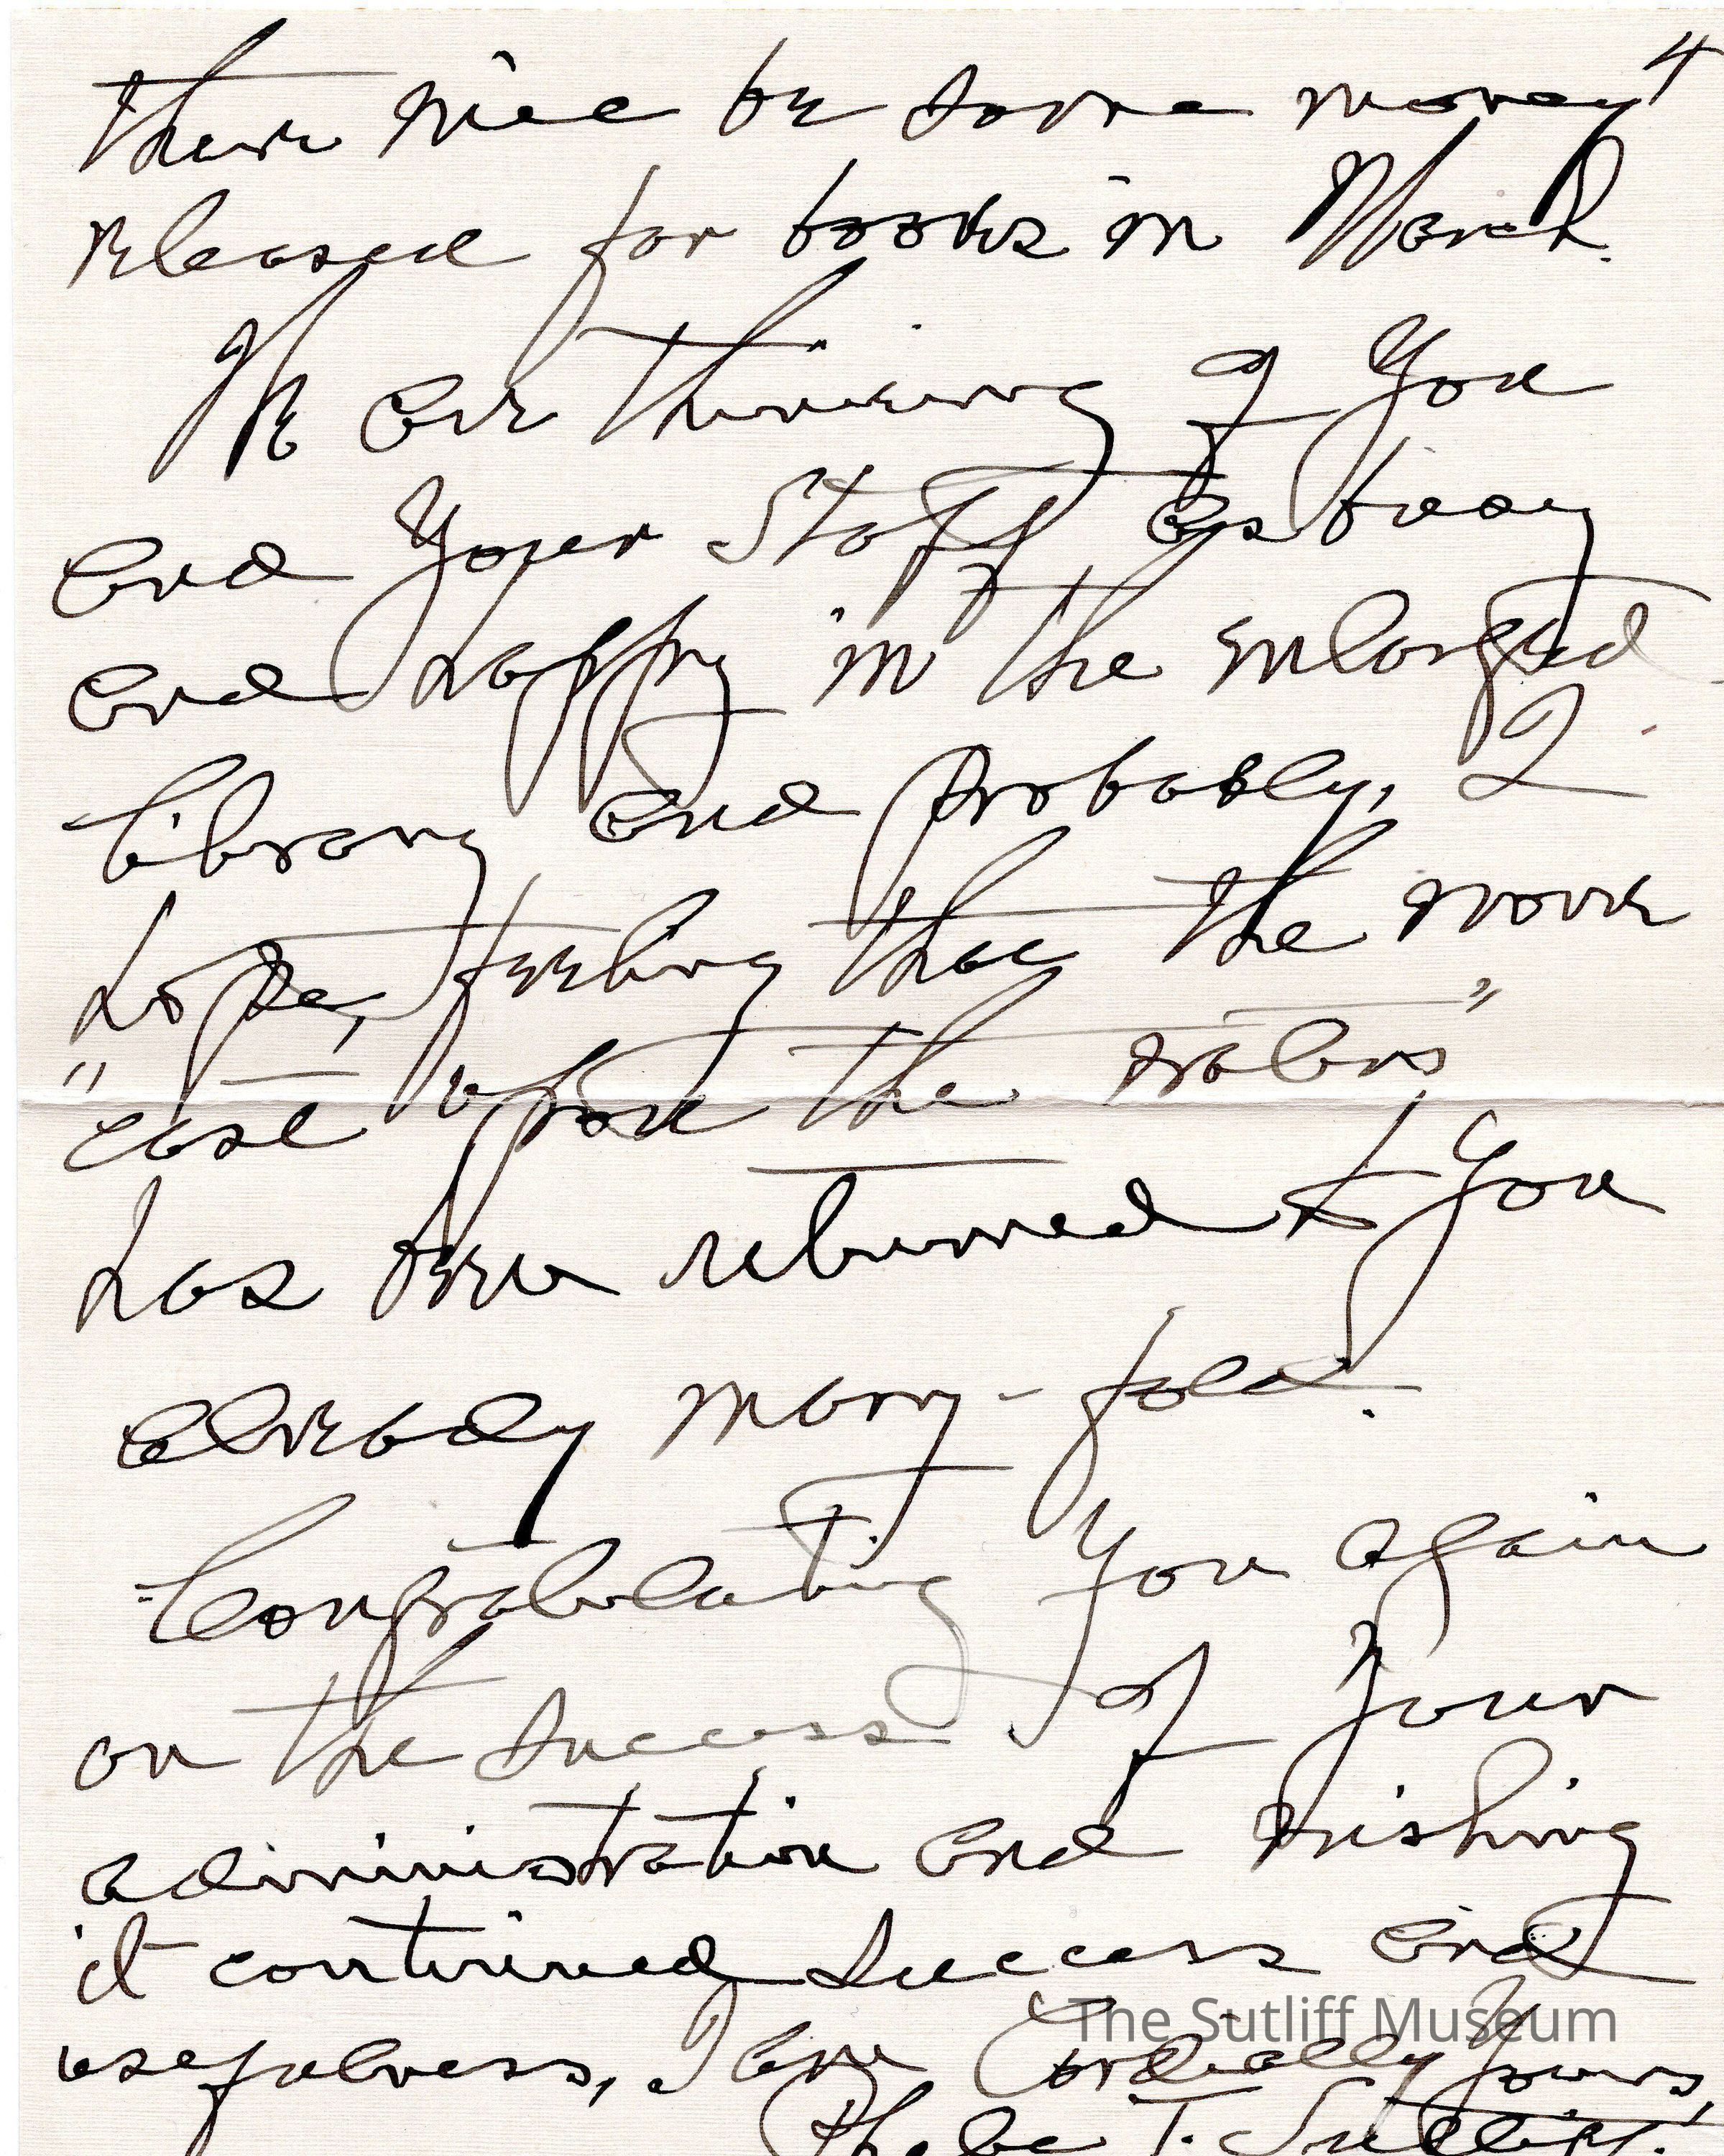 4
there will be some money
released for books in March.
We are thinking of you
and your staff as busy
and happy in the enlarged
library and probably, I
hope, feeling that the work
"cast upon the waters"
has been returned to you
already many-fold.
Congratulating you again
on the success of your
administration and wishing
it continued success and
usefulness, I am Cordially Yours,
Phebe T. Sutliff.
The Sutliff Museum